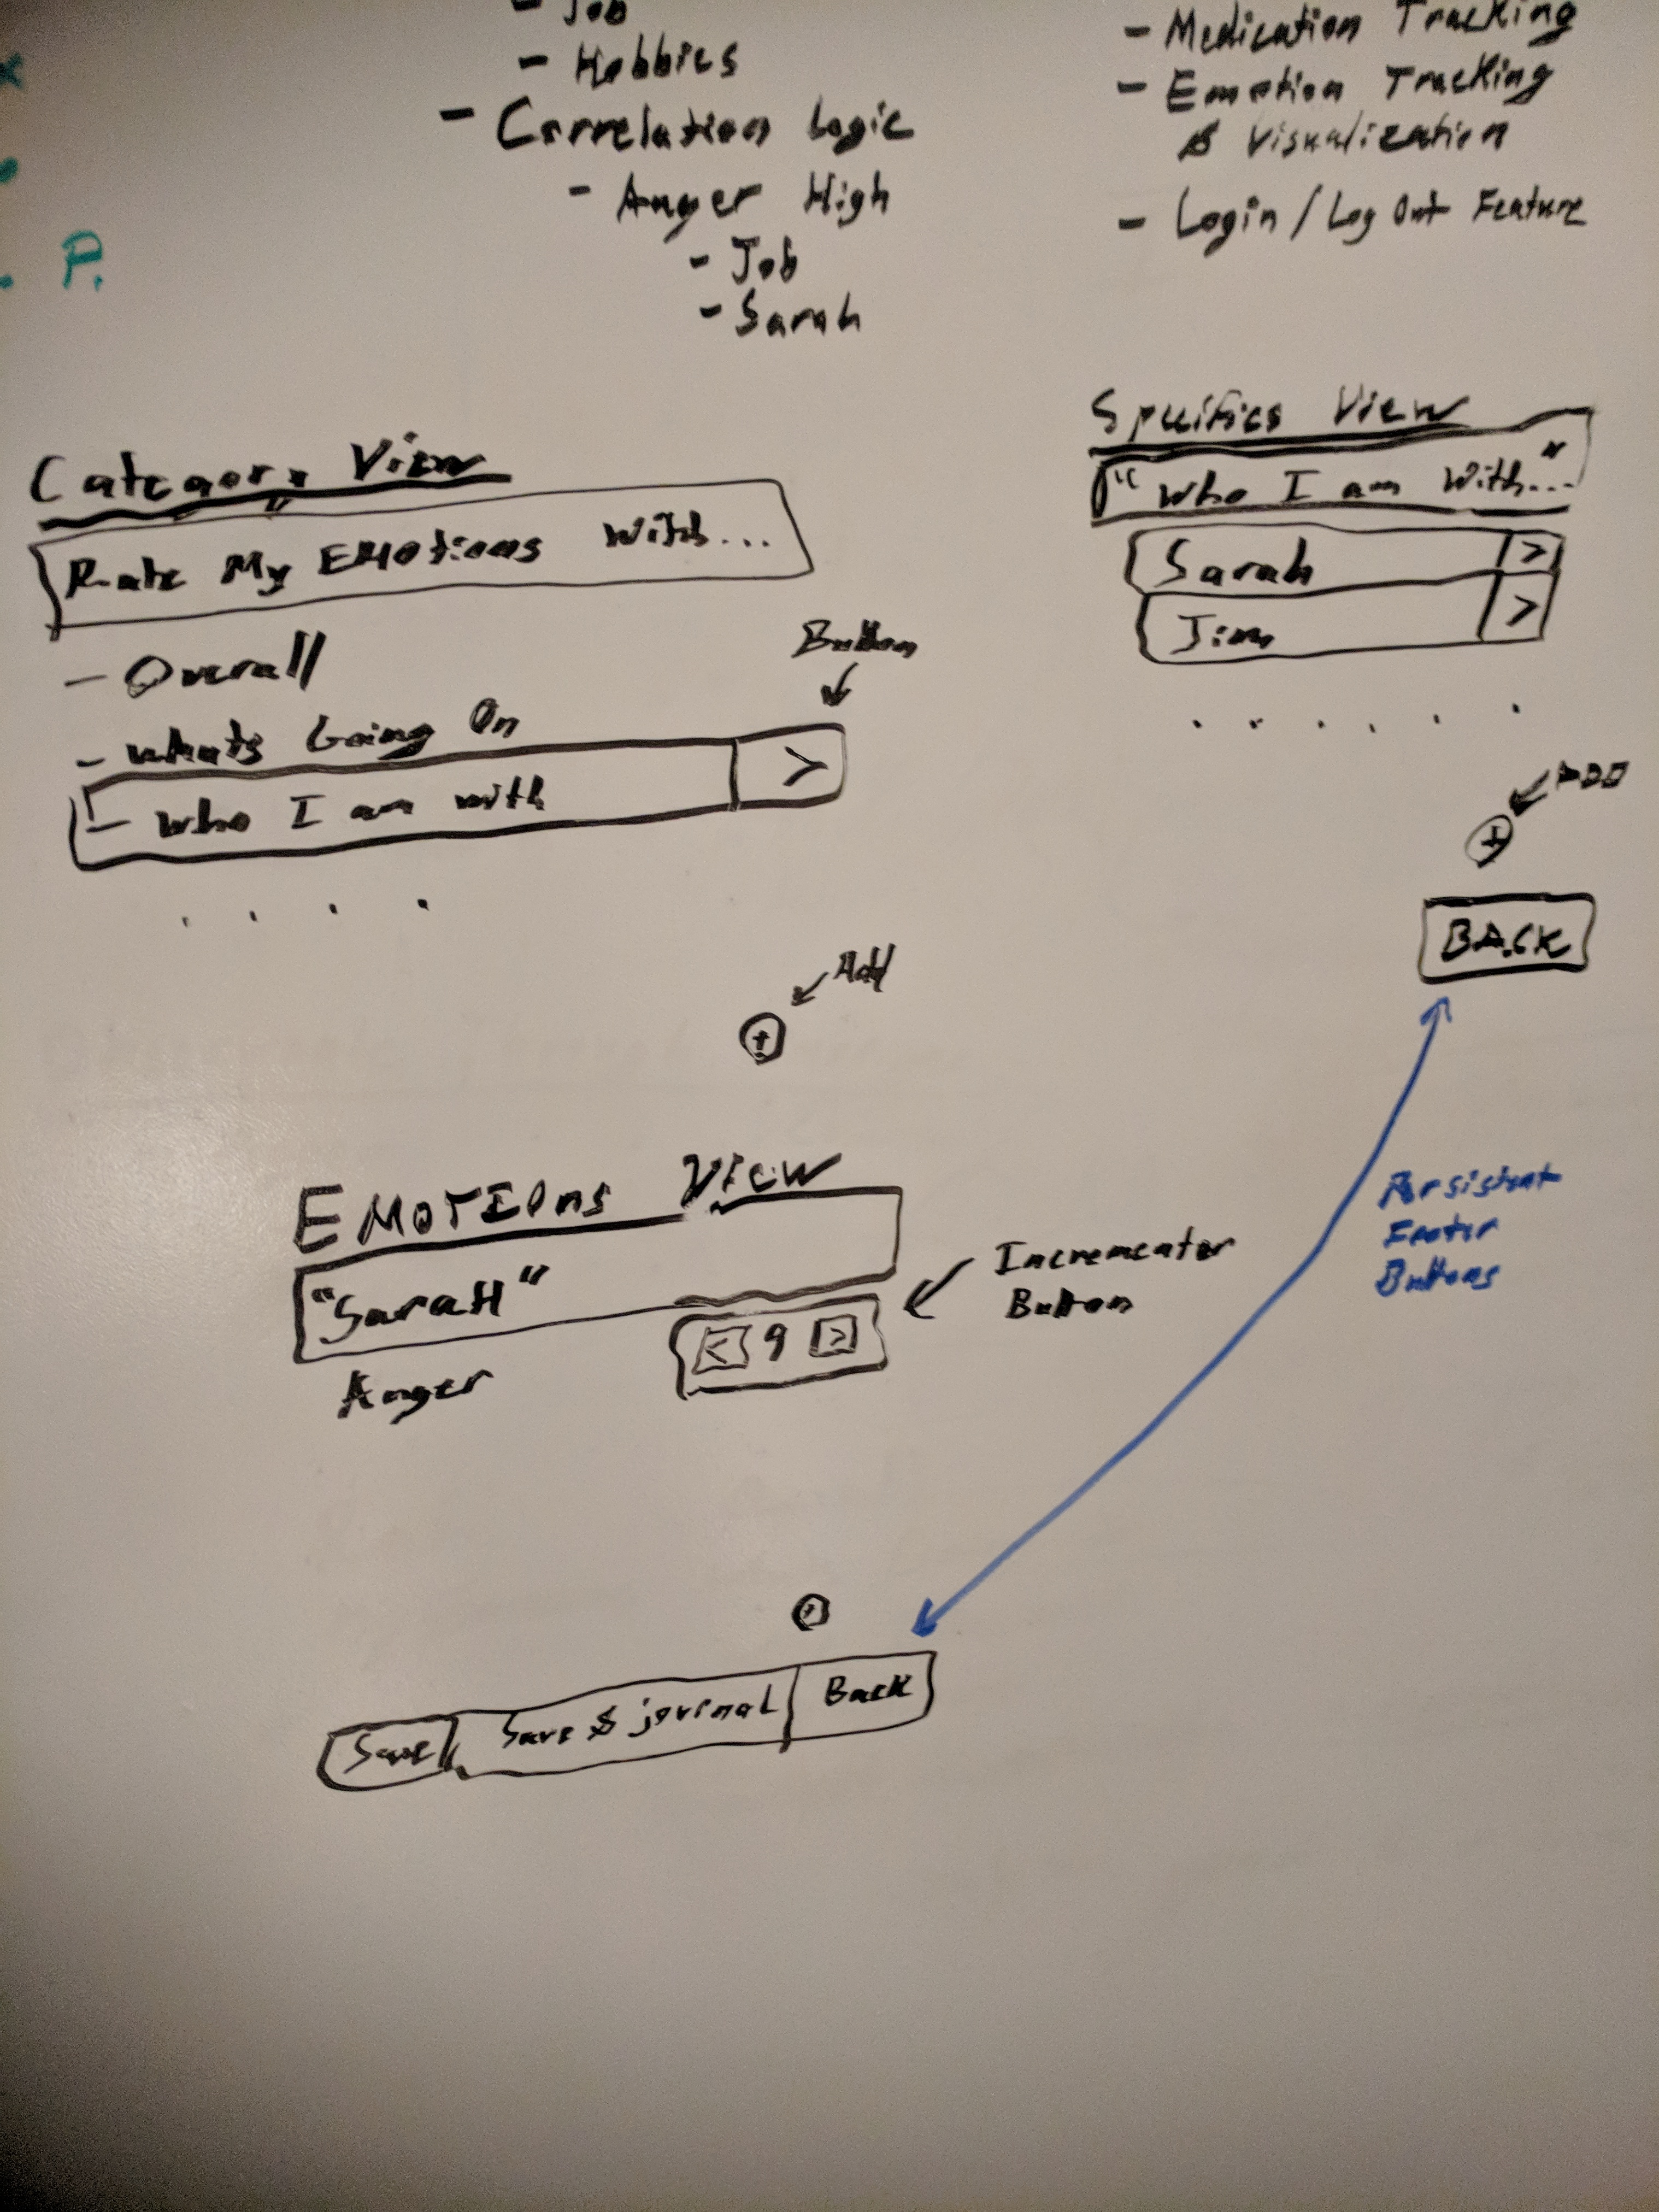 - Job
- Hobbies
- Correlation Logic
- Anger High
- Job
- Sarah
- Medication Tracking
- Emotion Tracking
& Visualization
- Login / Log Out Feature
P.
Category View
Rate My EMotions With...
- Overall
- Whats Going On
- Who I am with
Button
>
Add
+
Specifics View
"Who I am With..."
Sarah >
Jim >
ADD
+
BACK
Persistent
Footer
Buttons
EMOTIOns VIEW
"SaraH"
Anger
< 9 >
Incrementer
Button
+
Save
Save & journal
Back